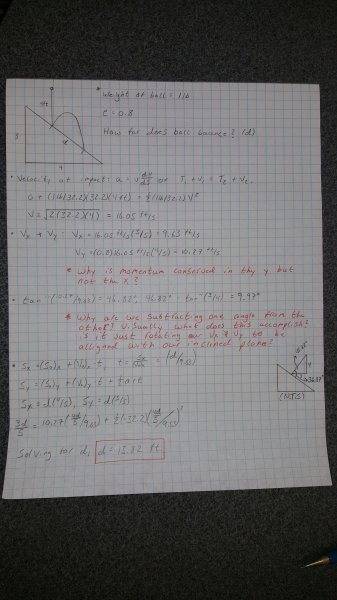 * Weight of ball = 1 lb
4ft
e = 0.8
How far does ball bounce? (d)
3
4
• Velocity at impact: a = v dv/ds or T₁ + V₁ = T₂ + V₂
0 + (1/32.2)(32.2)(4ft) = ½(1/32.2)V²
V = √2(32.2)(4) = 16.05 ft/s
• Vx + Vy: Vx = 16.05 ft/s (3/5) = 9.63 ft/s
Vy = (0.8)16.05 ft/s (4/5) = 10.27 ft/s
* Why is momentum conserved in the y but
not the x?
• tan⁻¹(10.27/9.63) = 46.82°, 46.82° - tan⁻¹(3/4) = 9.97°
* Why are we subtracting one angle from the
other? Visually what does this accomplish?
Is it just rotating our Vx & Vy to be
alligned with our inclined plane?
Sx = (So)x + (Vo)x t
Sy = (So)y + (Vo)y t + ½at²
Sx = d(4/5), Sy = d(3/5)
36.87°
(NTS)
Solving for d, d = 13.82 ft